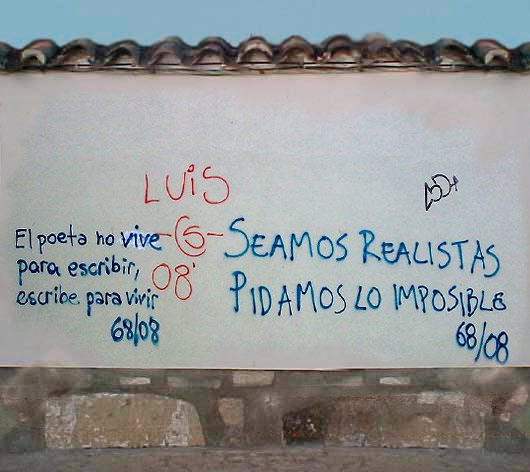 LUiS
El poeta no vive
para escribir,
escribe para vivir
68/08
-6-
08'
SEAMOS REALISTAS
PIDAMOS LO IMPOSIBLE
68/08